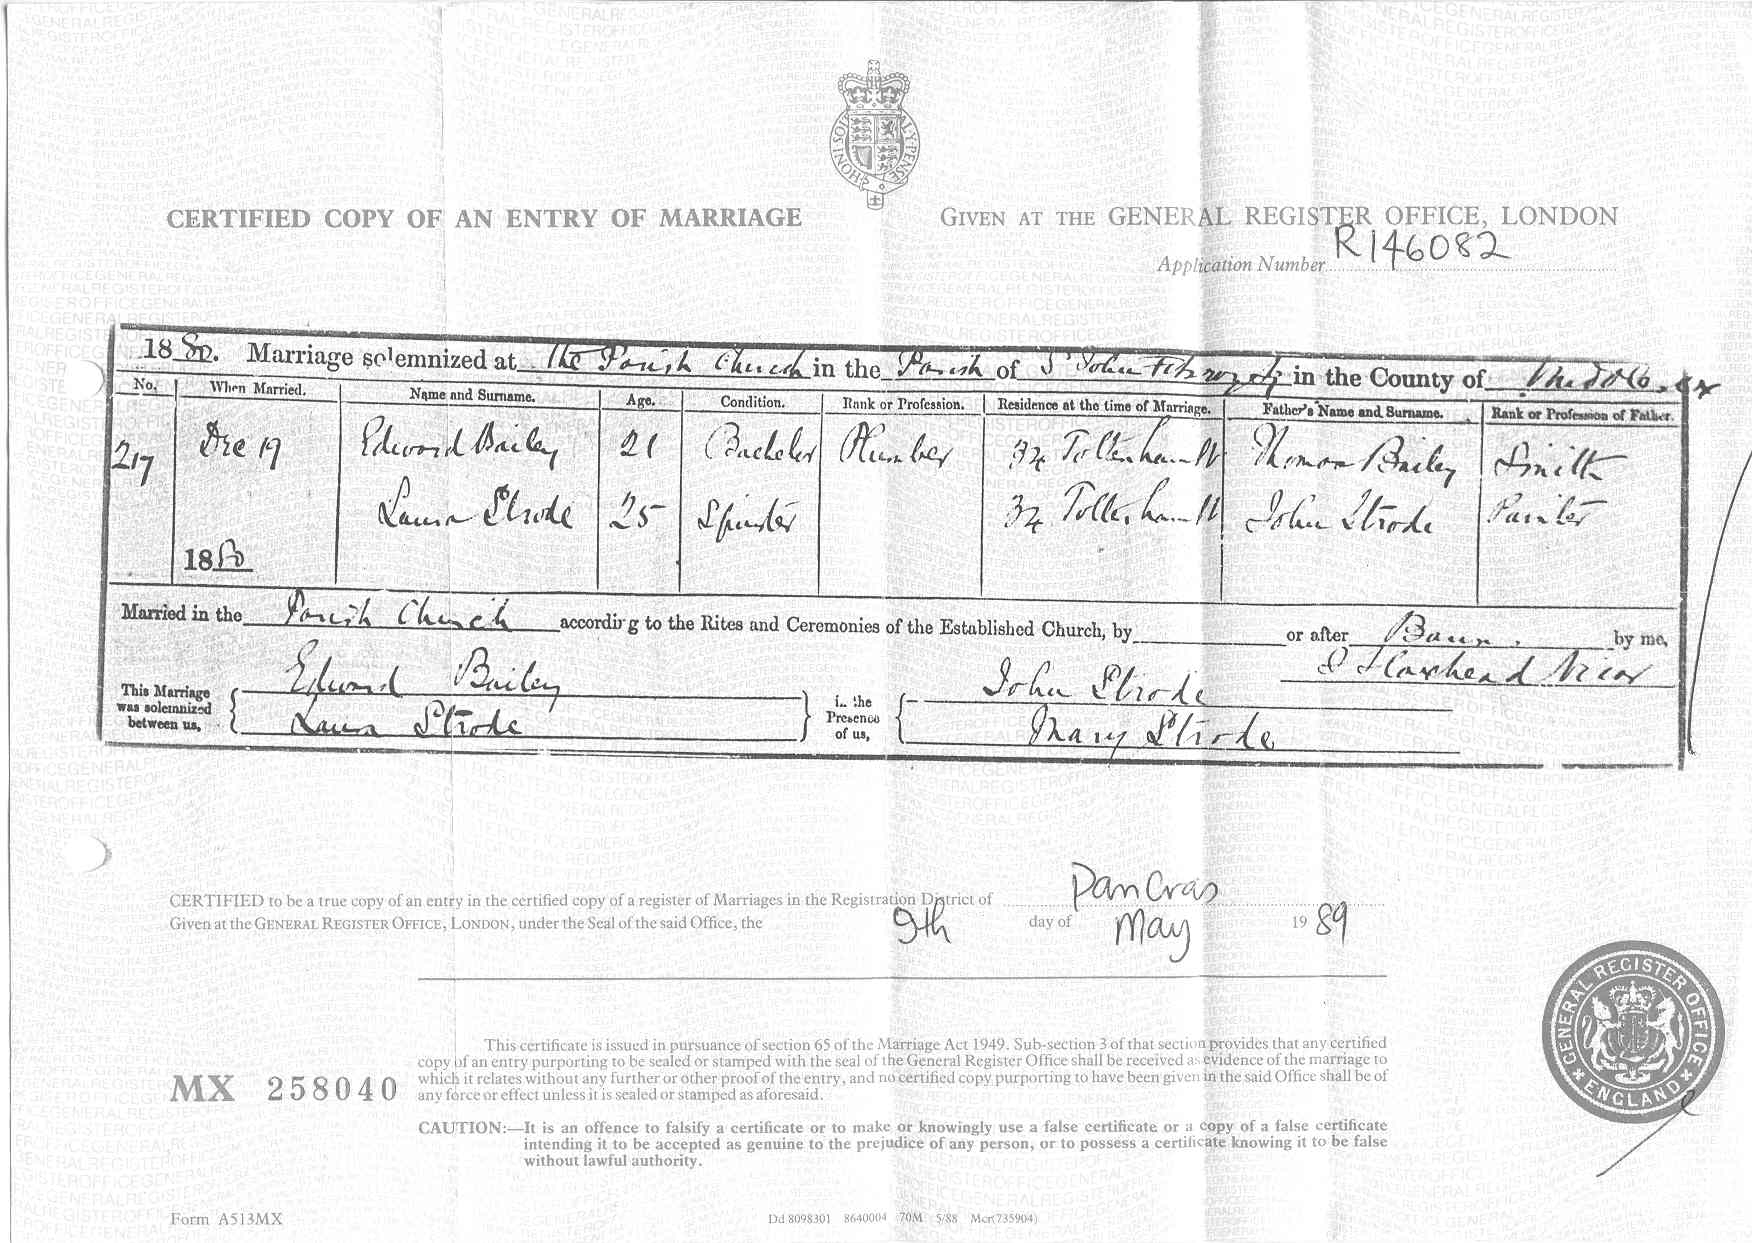 HONI SOIT QUI MAL Y PENSE
CERTIFIED COPY OF AN ENTRY OF MARRIAGE
GIVEN AT THE GENERAL REGISTER OFFICE, LONDON
Application Number R146082
1880. Marriage solemnized at the Parish Church in the Parish of St John Fitzroy Sq in the County of Middlesex
No. When Married. Name and Surname. Age. Condition. Rank or Profession. Residence at the time of Marriage. Father's Name and Surname. Rank or Profession of Father.
217 Dec 19 Edward Bailey 21 Bachelor Plumber 34 Tottenham St Thomas Bailey Smith
Laura Strode 25 Spinster 34 Tottenham St John Strode Painter
1880
Married in the Parish Church according to the Rites and Ceremonies of the Established Church, by or after Banns. by me,
Vicar
This Marriage was solemnized between us, Edward Bailey Laura Strode in the Presence of us, John Strode Mary Strode
CERTIFIED to be a true copy of an entry in the certified copy of a register of Marriages in the Registration District of Pancras
Given at the GENERAL REGISTER OFFICE, LONDON, under the Seal of the said Office, the 9th day of May 1989
This certificate is issued in pursuance of section 65 of the Marriage Act 1949. Sub-section 3 of that section provides that any certified
copy of an entry purporting to be sealed or stamped with the seal of the General Register Office shall be received as evidence of the marriage to
which it relates without any further or other proof of the entry, and no certified copy purporting to have been given in the said Office shall be of
any force or effect unless it is sealed or stamped as aforesaid.
MX 258040
CAUTION:—It is an offence to falsify a certificate or to make or knowingly use a false certificate or a copy of a false certificate
intending it to be accepted as genuine to the prejudice of any person, or to possess a certificate knowing it to be false
without lawful authority.
GENERAL REGISTER OFFICE
ENGLAND
Form A513MX
Dd 8098301 8640004 70M 5/88 Mcr(735904)